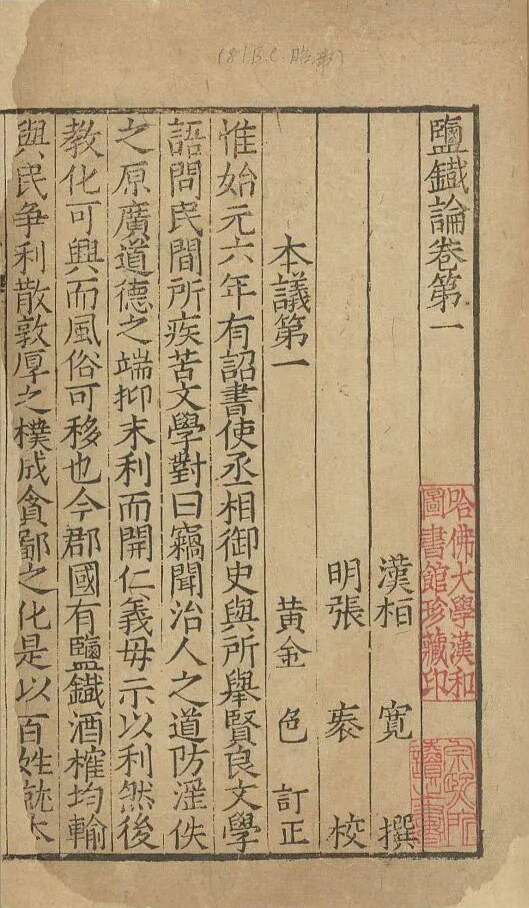 (81 B.C. 昭帝)
鹽鐵論卷第一
哈佛大學漢和
圖書館珍藏印
漢桓 寬 撰
明張 袠 校
本議第一 黃金 色 訂正
惟始元六年有詔書使丞相御史與所舉賢良文學
語問民間所疾苦文學對曰竊聞治人之道防淫佚
之原廣道德之端抑末利而開仁義毋示以利然後
教化可興而風俗可移也今郡國有鹽鐵酒榷均輸
與民爭利散敦厚之樸成貪鄙之化是以百姓就本